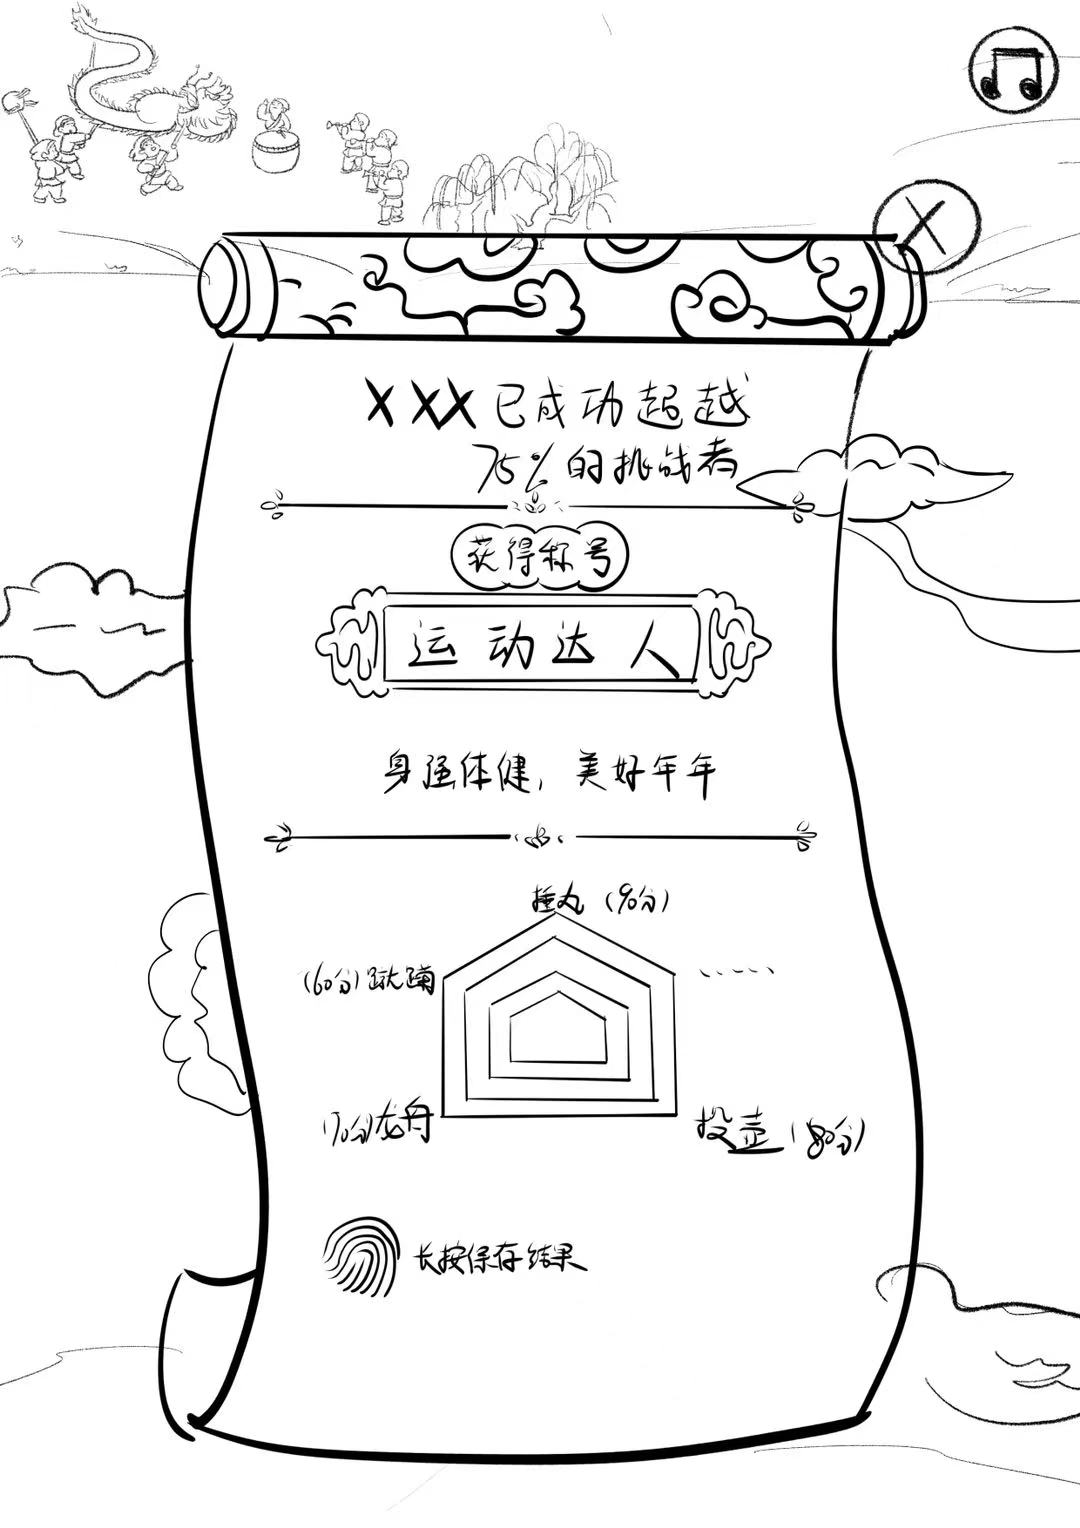 XXX已成功超越
75%的挑战者
获得称号
运动达人
身强体健，美好年年
捶丸（90分）
（60分）蹴鞠
······
（70分）龙舟
投壶（80分）
长按保存结果